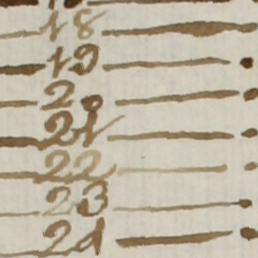 18
19
20
21
22
23
24